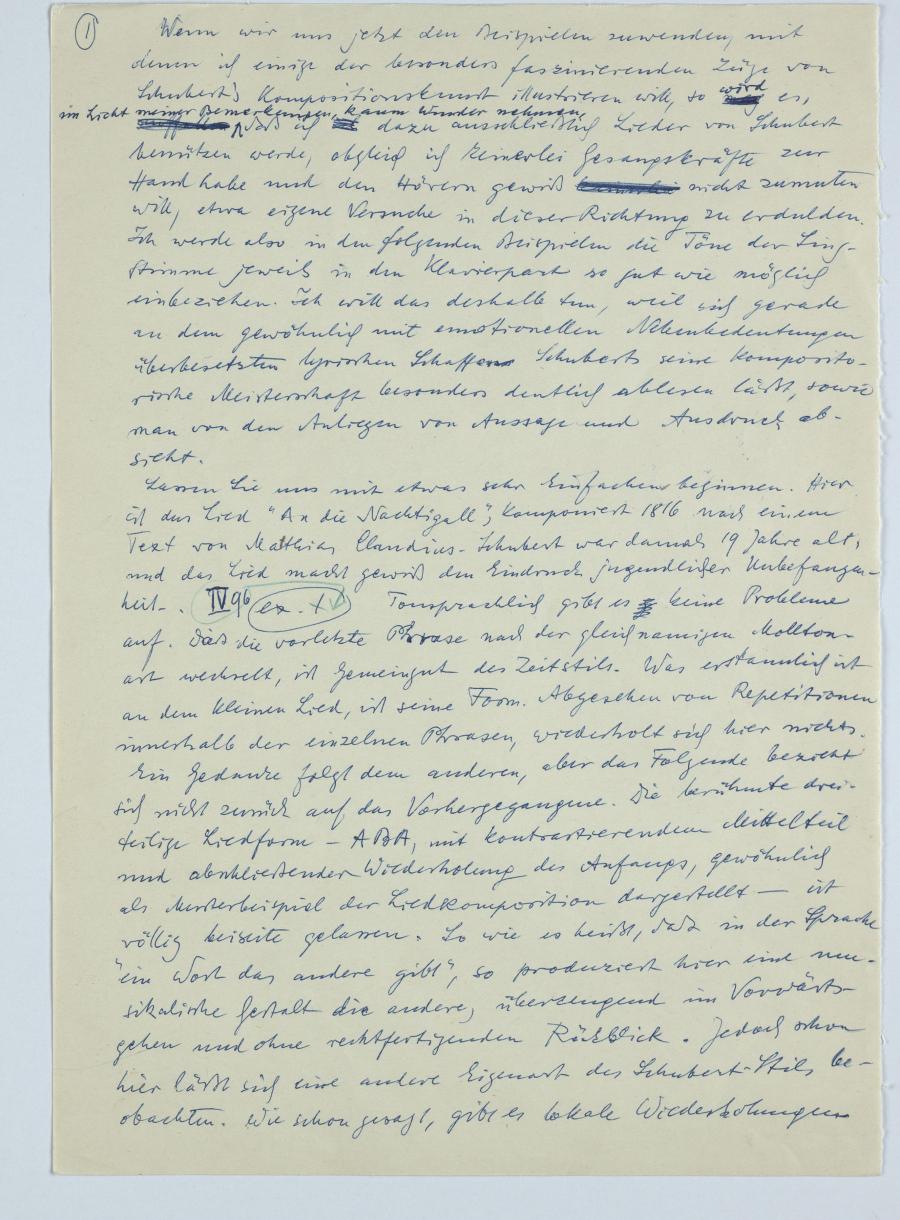 1
Wenn wir uns jetzt den Beispielen zuwenden, mit
denen ich einige der besonders faszinierenden Züge von
Schubert's Kompositionskunst illustrieren will, so wird es,
im Licht meiner Bemerkungen, kaum Wunder nehmen,
daß ich dazu ausschließlich Lieder von Schubert
benützen werde, obgleich ich keinerlei Gesangskräfte zur
Hand habe und den Hörern gewiß nicht zumuten
will, etwa eigene Versuche in dieser Richtung zu erdulden.
Ich werde also in den folgenden Beispielen die Töne der Sing-
stimme jeweils in den Klavierpart so gut wie möglich
einbeziehen. Ich will das deshalb tun, weil sich gerade
an dem gewöhnlich mit emotionellen Nebenbedeutungen
überbesetzten lyrischen Schaffen Schuberts seine komposito-
rische Meisterschaft besonders deutlich ablesen läßt, sowie
man von den Anliegen von Aussage und Ausdruck ab-
sieht.
Lassen Sie uns mit etwas sehr Einfachem beginnen. Hier
ist das Lied "An die Nachtigall", komponiert 1816 nach einem
Text von Matthias Claudius. Schubert war damals 19 Jahre alt,
und das Lied macht gewiß den Eindruck jugendlicher Unbefangen-
heit. . IV 96 ex. + Tonsprachlich gibt es keine Probleme
auf. Daß die vorletzte Phrase nach der gleichnamigen Mollton-
art wechselt, ist Gemeingut des Zeitstils. Was erstaunlich ist
an dem kleinen Lied, ist seine Form. Abgesehen von Repetitionen
innerhalb der einzelnen Phrasen, wiederholt sich hier nichts.
Ein Gedanke folgt dem anderen, aber das Folgende bezieht
sich nicht zurück auf das Vorhergegangene. Die berühmte drei-
teilige Liedform – ABA, mit kontrastierendem Mittelteil
und abschließender Wiederholung des Anfangs, gewöhnlich
als Musterbeispiel der Liedkomposition dargestellt — ist
völlig beiseite gelassen. So wie es heißt, daß in der Sprache
"ein Wort das andere gibt", so produziert hier eine mu-
sikalische Gestalt die andere, überzeugend im Vorwärts-
gehen und ohne rechtfertigenden Rückblick. Jedoch schon
hier läßt sich eine andere Eigenart des Schubert-Stils be-
obachten. Wie schon gesagt, gibt es lokale Wiederholungen